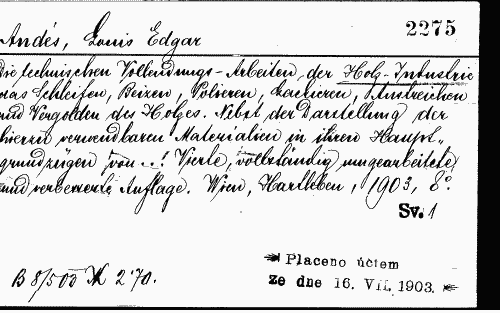 Andés, Louis Edgar 2275
Die technischen Vollendungs-Arbeiten der Holz-Industrie
das Schleifen, Beizen, Polieren, Lackieren, Anstreichen
und Vergolden des Holzes. Nebst der Darstellung der
hierzu verwendbaren Materialien in ihren Haupt-
grundzügen von ...! Vierte, vollständig umgearbeitete
und verbesserte Auflage. Wien, Hartleben, 1903, 8°.
Sv. 1
Placeno účtem
B 8/500 K 2·70. Ze dne 16. VII. 1903.